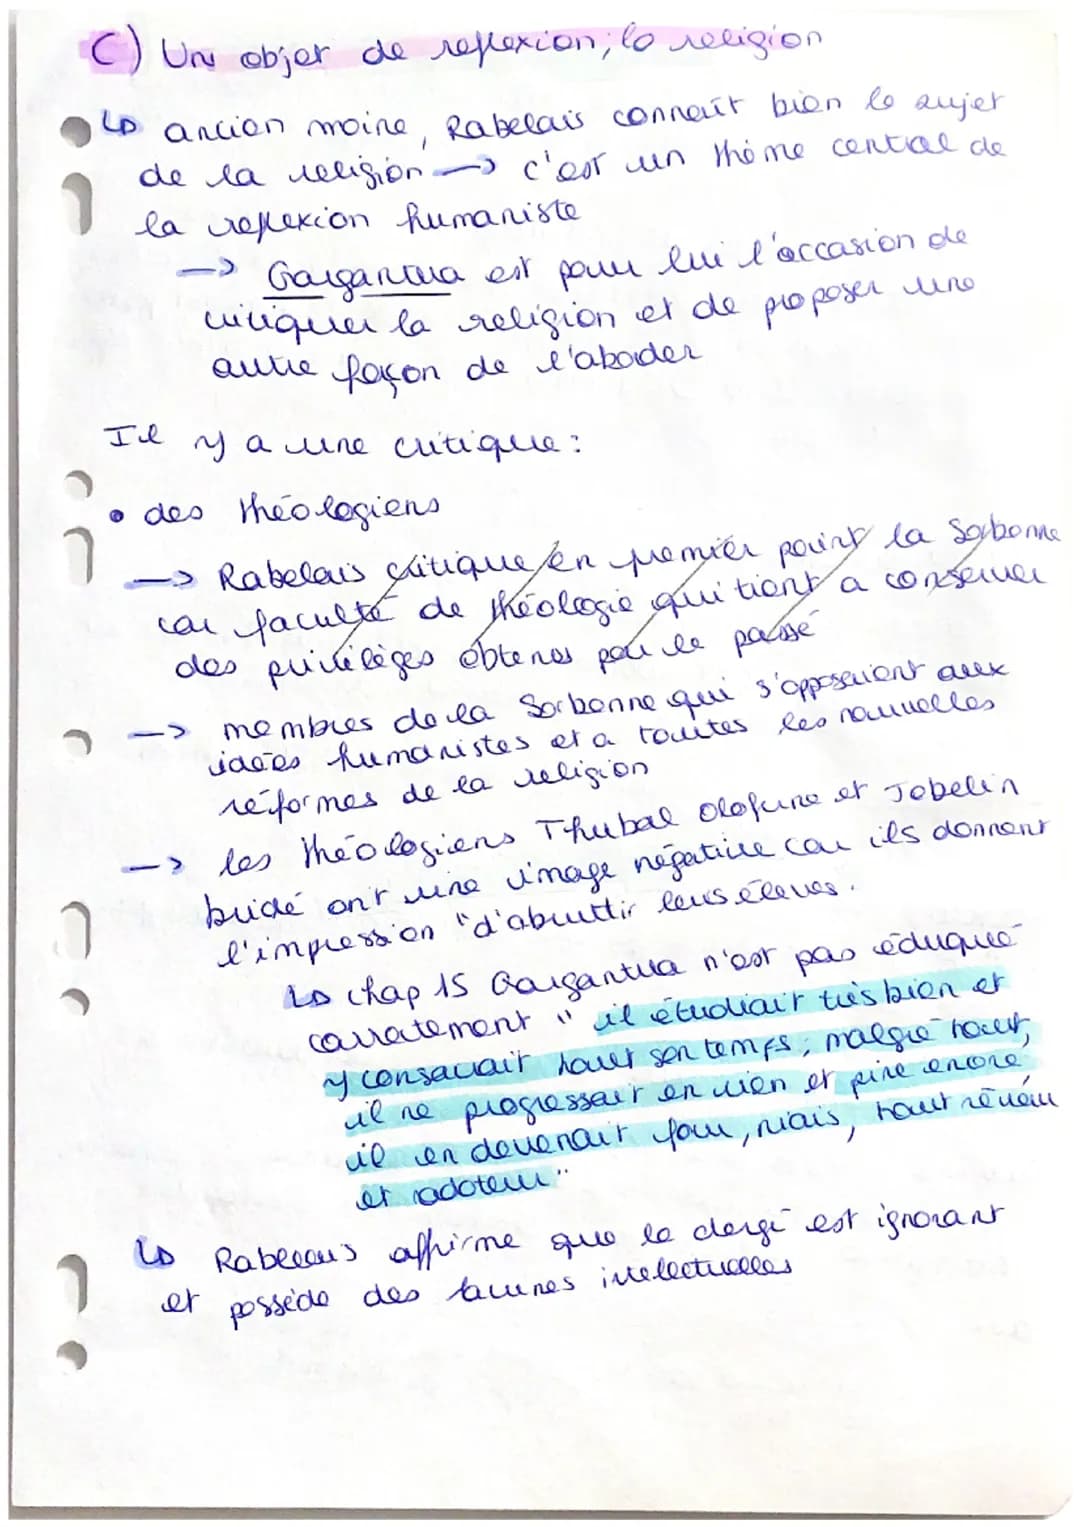 C) Un objet de reflexion; la religion
↳ ancien moine, Rabelais connaît bien le sujet
de la religion → c'est un thème central de
la reflexion humaniste
→ Gargantua est pour lui l'occasion de
critiquer la religion et de proposer une
autre façon de l'aborder
Il y a une critique :
• des théologiens
→ Rabelais critique en premier point la Sorbonne
car faculté de théologie qui tient a conserver
des privilèges obtenos par le passé
→ membres de la Sorbonne qui s'opposaient aux
idées humanistes et a toutes les nouvelles
réformes de la religion
→ les théologiens Thubal Oloferne et Jobelin
bridé ont une image négative car ils donnent
l'impression "d'abruttir leurs élèves.
↳ chap 15 Gargantua n'est pas éduqué
correctement " il étudiait très bien et
y consacrait tout son temps; malgré tout,
il ne progressait en rien et pire encore
il en devenait fou, niais, tout rêveur
et radoteur"
↳ Rabelais affirme que le clergé est ignorant
et possède des lacunes intelectuelles